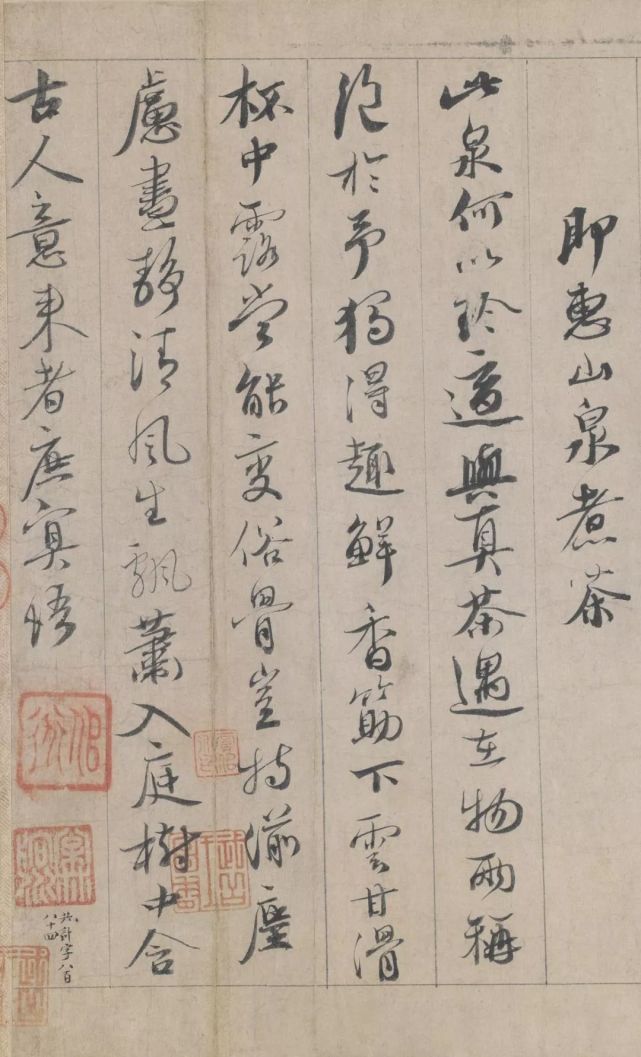 即惠山泉煮茶
此泉何以珎適與真茶遇在物兩稱
絕於予獨得趣鮮香筯下雲甘滑
杯中露當能變俗骨豈特湔塵
慮晝靜清風生飄蕭入庭樹中含
古人意來者庶冥悟
共計字八百
八十四